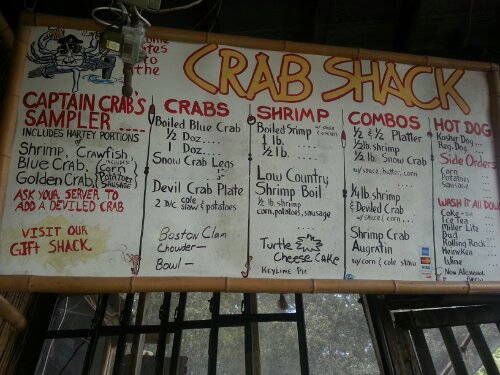 to the
CRAB SHACK
CAPTAIN CRAB'S
SAMPLER
INCLUDES HARTEY PORTIONS
of
Shrimp, Crawfish,
Blue Crab,
Golden Crab
INCLUDES
Corn
POTATOES
SAUSAGE
ASK YOUR SERVER TO
ADD A DEVILED CRAB
VISIT OUR
GIFT SHACK
CRABS
Boiled Blue Crab
½ Doz....
1 Doz....
Snow Crab Legs
Devil Crab Plate
2 D/C cole slaw & potatoes
Boston Clam
Chowder-
Bowl -
SHRIMP
Boiled Srimp
½ lb.
Low Country
Shrimp Boil
½ lb. shrimp
corn, potatoes, sausage
Turtle
Cheese Cake
KEYLIME PIE
COMBOS
½ & ½ Platter
½ lb. shrimp
½ lb. Snow Crab
w/ sauce, butter, corn
¼ lb shrimp
& Deviled Crab
w/ sauce & corn
Shrimp Crab
Augratin
w/ corn & cole slaw
VISA
HOT DOG
Kosher Dog
Reg. Dog
Side Orders
Corn
Potatoes
Sausage
WASH IT ALL DOW
Coke
Ice Tea
Miller Lite
Bud
Rolling Rock
Heineken
Wine
Non Alcoholic